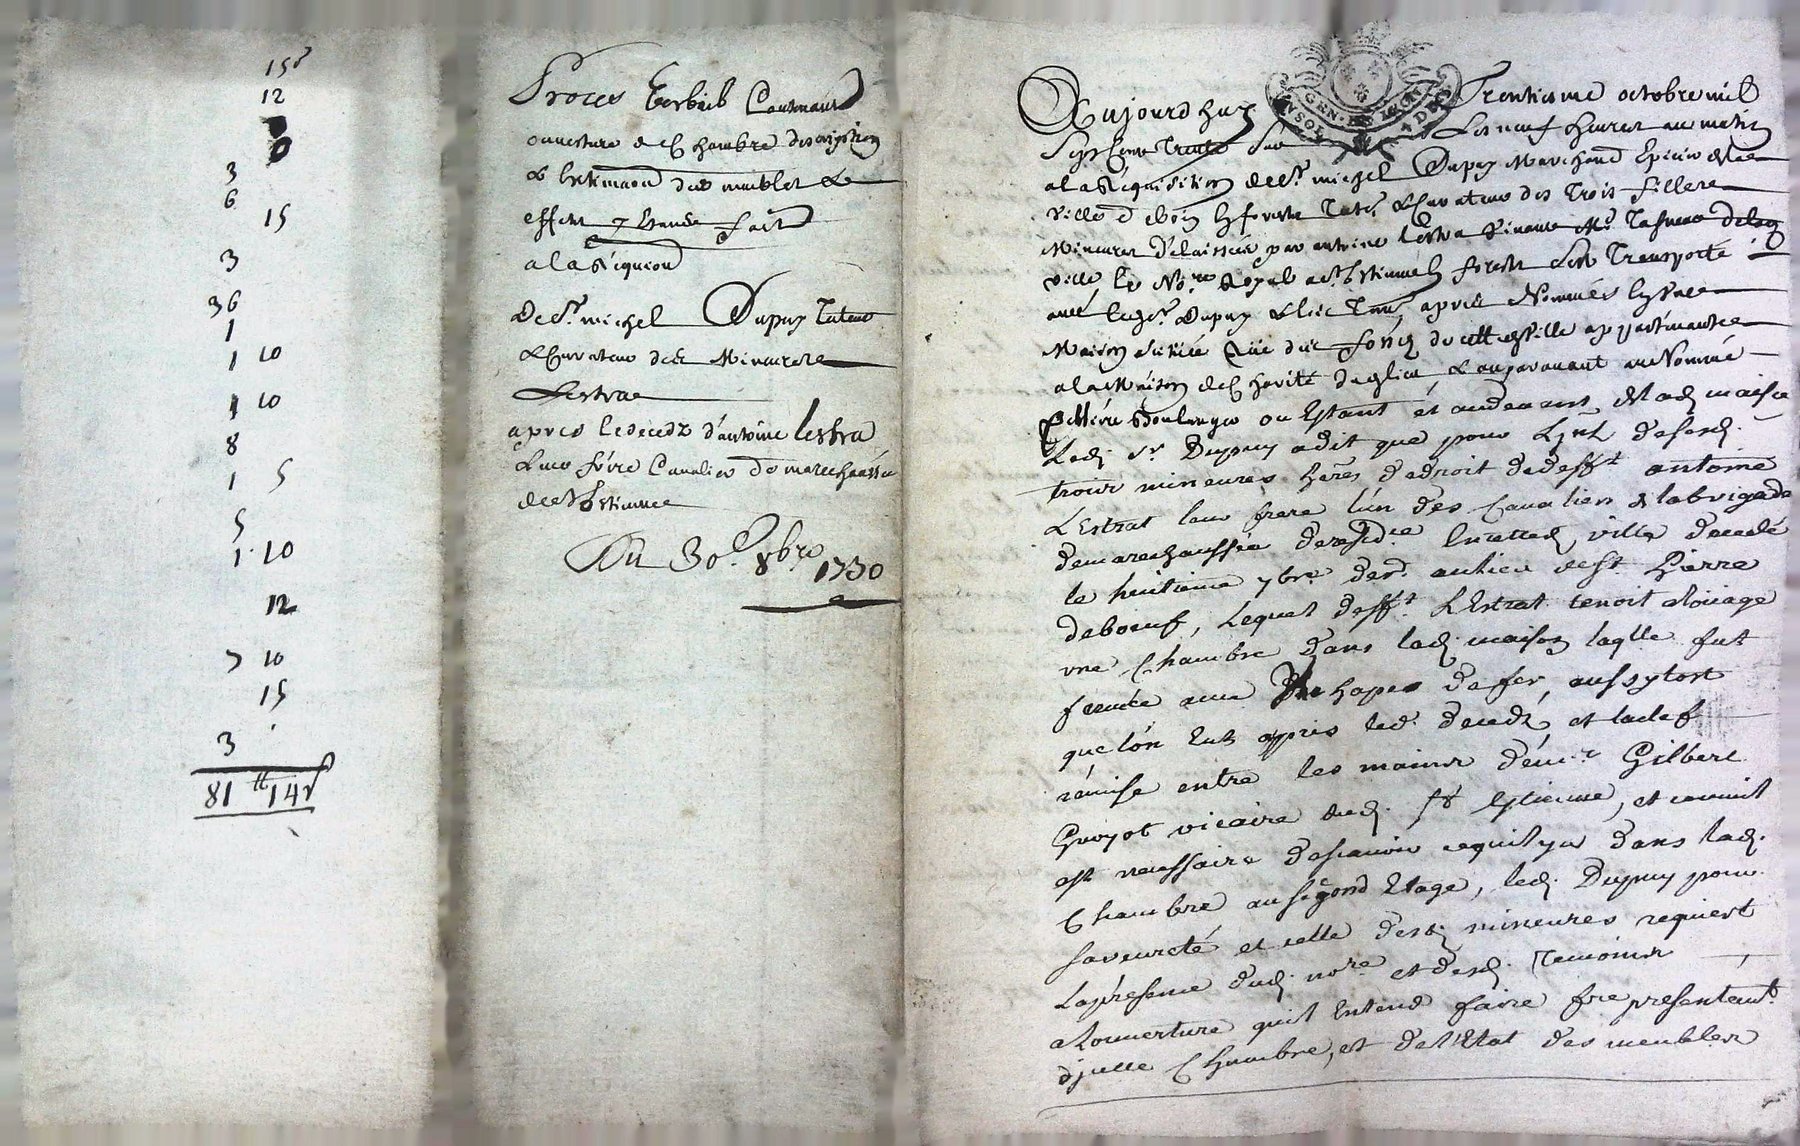 15s
12
3
6
15
3
36
1
1 10
1 10
8
1 5
5
1 10
12
7 10
15
3
81 tt 14s
Proces Verbail Contenant
ouverture de Chambre description
& Estimaon des meubles &
effets y Etants fait
a la Requison
de Sr. michel Dupuy Tuteur
& Curateur des Mineures
Lestra
apres le decedz d'antoine lestra
Leur frere Cavalier de marechaussée
de St Estienne
Du 30e. 8bre 1730
GEN.
Aujourd'huy Trentieme octobre mil
Sept Cent Trente Sur Les neuf heures au matin
a la Requisition de Sr. michel Dupuy Marchand Epicier de la
ville de en forests Tuteur & Curateur des Trois filles
Mineures délaissées par antoine Lestra Vivant Me. de la
ville le Nore. Royal a St. Estienne en forests s'est Transporté
avec led. Sr. Dupuy & les Tem. apres Nommés En une
Maison située Rüe de cette ville appartenante
a la Maison de Charité d'eglise & auparavant au Nommé
Boulanger ou Estant et audevant de lad. maison
Led. Sr. Dupuy a dit que pour desd.
trois mineures heres. de droit de deff.t antoine
L'Estrat leur frere l'un des Cavaliers de la brigade
de marechaussée de resid.ce En cette d. ville decedé
le huitieme 7bre. der. au lieu de St. Pierre
de boeuf, Lequel deff.t L'Estrat tenoit a loüage
une Chambre dans lad. maison laqlle fut
fermée avec de fer, aussytost
que l'on Eut appris led. decedz, et la clef
remise entre les mains de Mr. Gilbert
Guyot vicaire dud. St Estienne, et comme il
est necessaire de scavoir ce qu'il y a dans lad.
Chambre au segond Etage, led. Dupuy pour
sa seureté et celle desd. mineures requiert
La presence dud. nore et desd. Temoins
a Louverture qu'il Entend faire fre presentemt.
d'jcelle Chambre, et de l'Etat des meubles